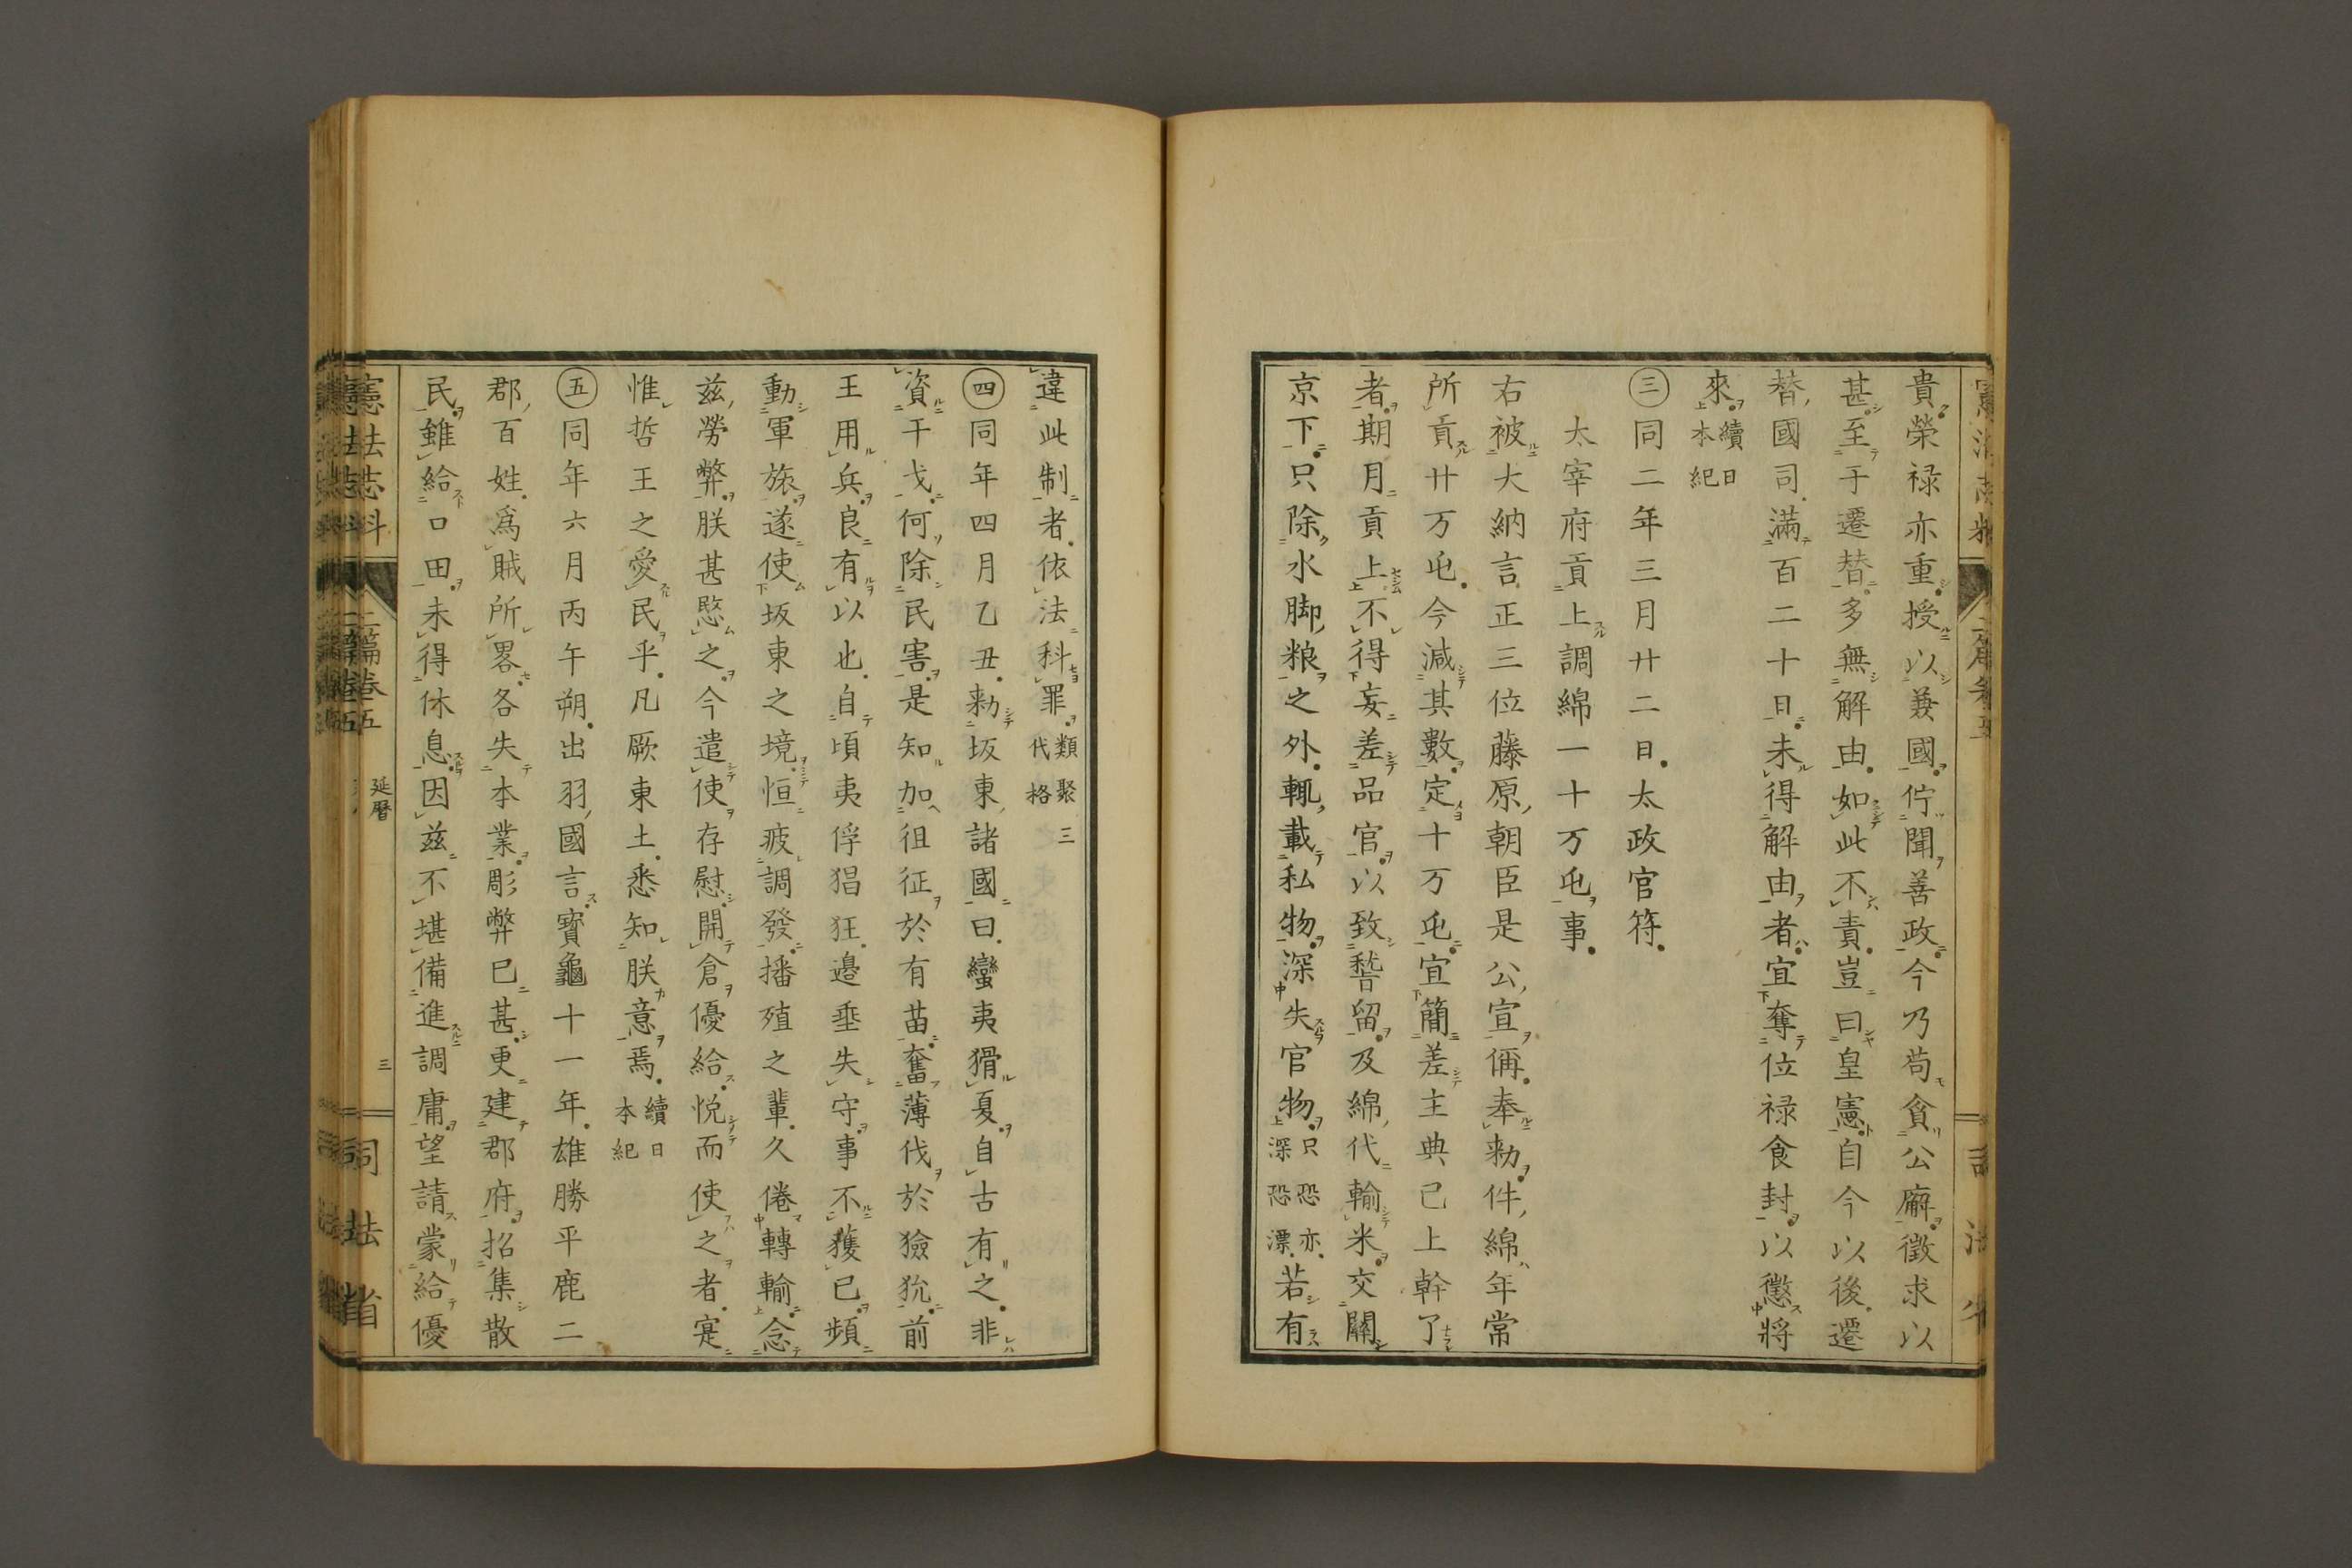 貴榮祿亦重授以兼國佇聞善政今乃苟貪公廨徵求以
甚至于遷替多無解由如此不責豈曰皇憲自今以後遷
替國司滿百二十日未得解由者宜奪位祿食封以懲將
來續日本紀
三同二年三月廿二日太政官符
太宰府貢上調綿一十万屯事
右被大納言正三位藤原朝臣是公宣偁奉勅件綿年常
所貢廿万屯今減其數定十万屯宜簡差主典已上幹了
者期月貢上不得妄差品官以致嵆留及綿代輸米交關
京下只除水脚粮之外輒載私物深失官物只恐亦深恐漂若有
違此制者依法科罪類聚三代格
四同年四月乙丑勅坂東諸國曰蠻夷猾夏自古有之非
資干戈何除民害是知加徂征於有苗奮薄伐於獫狁前
王用兵良有以也自頃夷俘猖狂邊垂失守事不獲已頻
動軍旅遂使坂東之境恒疲調發播殖之輩久倦轉輸念
茲勞弊朕甚愍之今遣使存慰開倉優給悅而使之者寔
惟哲王之愛民乎凡厥東土悉知朕意焉續日本紀
五同年六月丙午朔出羽國言寶龜十一年雄勝平鹿二
郡百姓爲賊所畧各失本業彫弊已甚更建郡府招集散
民雖給口田未得休息因茲不堪備進調庸望請蒙給優
憲法志料
二篇卷五
延曆
三
司法省